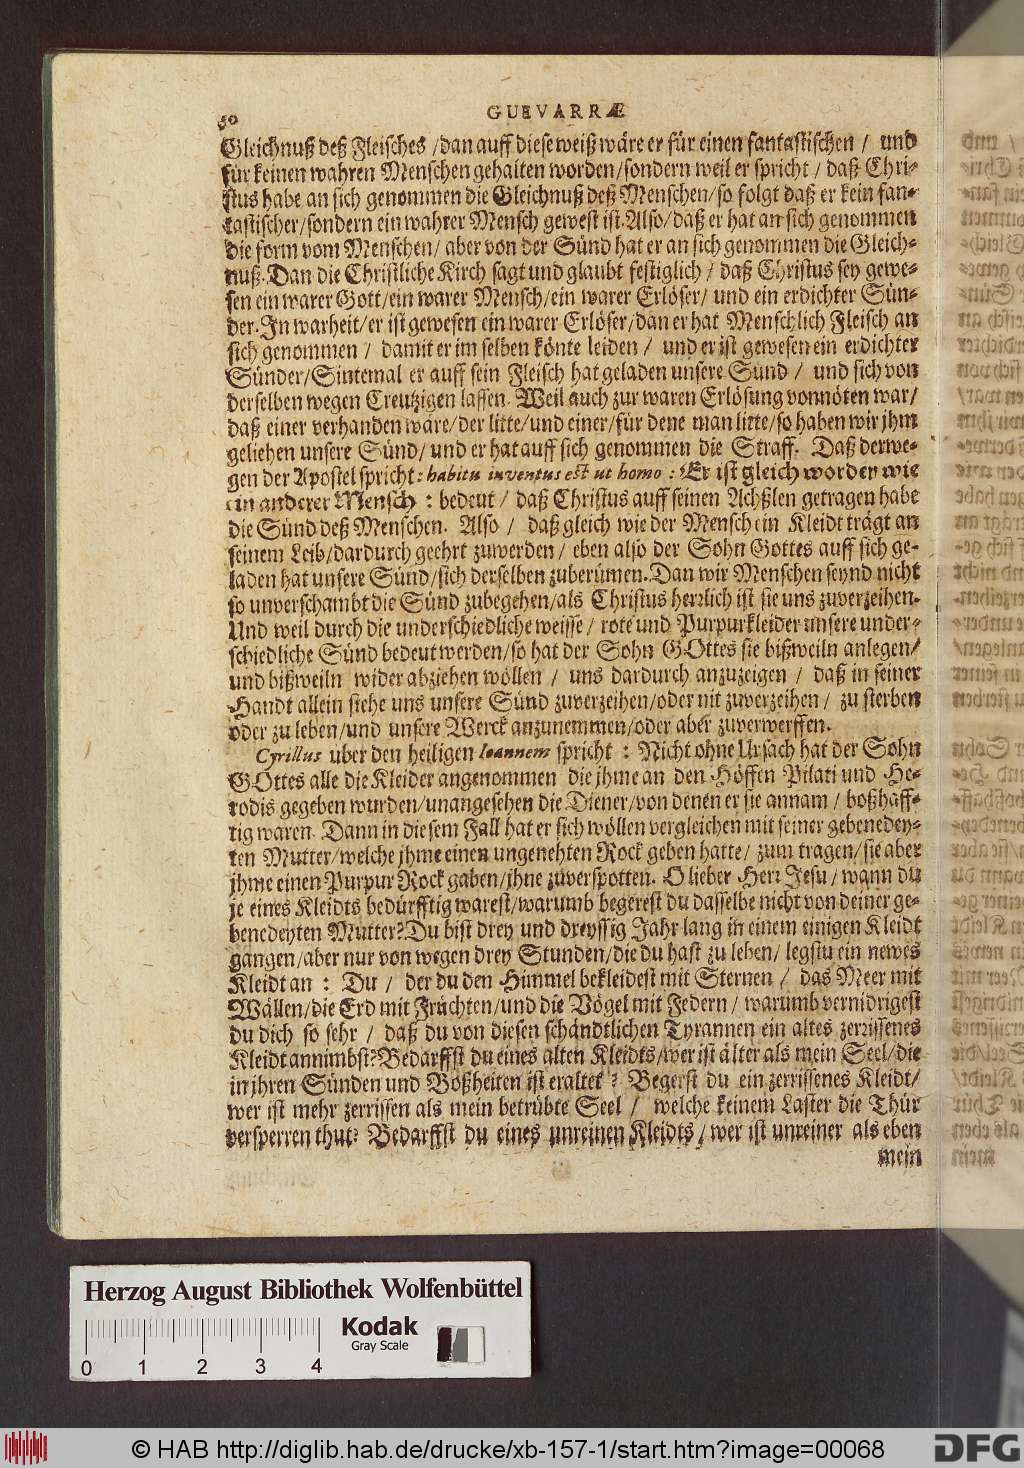 50
GUEVARRÆ
Gleichnuß deß Fleisches / dan auff diese weiß wäre er für einen fantastischen / und
für keinen wahren Menschen gehalten worden / sondern weil er spricht / daß Chri-
stus habe an sich genommen die Gleichnuß deß Menschen / so folgt daß er kein fan-
tastischer / sondern ein wahrer Mensch gewest ist. Also / daß er hat an sich genommen
die form vom Menschen / aber von der Sünd hat er an sich genommen die Gleich-
nuß. Dan die Christliche Kirch sagt und glaubt festiglich / daß Christus sey gewe-
sen ein warer Gott / ein warer Mensch / ein warer Erlöser / und ein erdichter Sün-
der. In warheit / er ist gewesen ein warer Erlöser / dan er hat Menschlich Fleisch an
sich genommen / damit er im selben könte leiden / und er ist gewesen ein erdichter
Sünder / Sintemal er auff sein Fleisch hat geladen unsere Sünd / und sich von
derselben wegen Creutzigen lassen. Weil auch zur waren Erlösung vonnöten war /
daß einer verhanden wäre / der litte / und einer / für dene man litte / so haben wir jhm
geliehen unsere Sünd / und er hat auff sich genommen die Straff. Daß derwe-
gen der Apostel spricht : habitu inventus est ut homo : Er ist gleich worden wie
ein anderer Mensch : bedeut / daß Christus auff seinen Achßlen getragen habe
die Sünd deß Menschen. Also / daß gleich wie der Mensch ein Kleidt trägt an
seinem Leib / dardurch geehrt zuwerden / eben also der Sohn Gottes auff sich ge-
laden hat unsere Sünd / sich derselben zuberümen. Dan wir Menschen seynd nicht
so unverschambt die Sünd zubegehen / als Christus herrlich ist sie uns zuverzeihen.
Und weil durch die underschiedliche weisse / rote und Purpurkleider unsere under-
schiedliche Sünd bedeut werden / so hat der Sohn GOttes sie bißweiln anlegen /
und bißweiln wider abziehen wöllen / uns dardurch anzuzeigen / daß in seiner
Handt allein stehe uns unsere Sünd zuverzeihen / oder nit zuverzeihen / zu sterben
oder zu leben / und unsere Werck anzunemmen / oder aber zuverwerffen.
Cyrillus uber den heiligen Ioannem spricht : Nicht ohne Ursach hat der Sohn
GOttes alle die Kleider angenommen die jhme an den Höffen Pilati und He-
rodis gegeben wurden / unangesehen die Diener / von denen er sie annam / boßhaff-
tig waren. Dann in diesem Fall hat er sich wöllen vergleichen mit seiner gebenedey-
ten Mutter / welche jhme einen ungenehten Rock geben hatte / zum tragen / sie aber
jhme einen Purpur Rock gaben / jhne zuverspotten. O lieber Herr Jesu / wann du
je eines Kleidts bedürfftig warest / warumb begerest du dasselbe nicht von deiner ge-
benedeyten Mutter? Du bist drey und dreyssig Jahr lang in einem einigen Kleidt
gangen / aber nur von wegen drey Stunden / die du hast zu leben / legstu ein newes
Kleidt an : Du / der du den Himmel bekleidest mit Sternen / das Meer mit
Wällen / die Erd mit Früchten / und die Vögel mit Federn / warumb vernidrigest
du dich so sehr / daß du von diesen schändtlichen Tyrannen ein altes zerrissenes
Kleidt annimbst? Bedarffst du eines alten Kleidts / wer ist älter als mein Seel / die
in jhren Sünden und Boßheiten ist eraltet ? Begerst du ein zerrissenes Kleidt /
wer ist mehr zerrissen als mein betrübte Seel / welche keinem Laster die Thür
versperren thut? Bedarffst du eines unreinen Kleidts / wer ist unreiner als eben
mein
Herzog August Bibliothek Wolfenbüttel
Kodak
Gray Scale
0 1 2 3 4
© HAB http://diglib.hab.de/drucke/xb-157-1/start.htm?image=00068
DFG